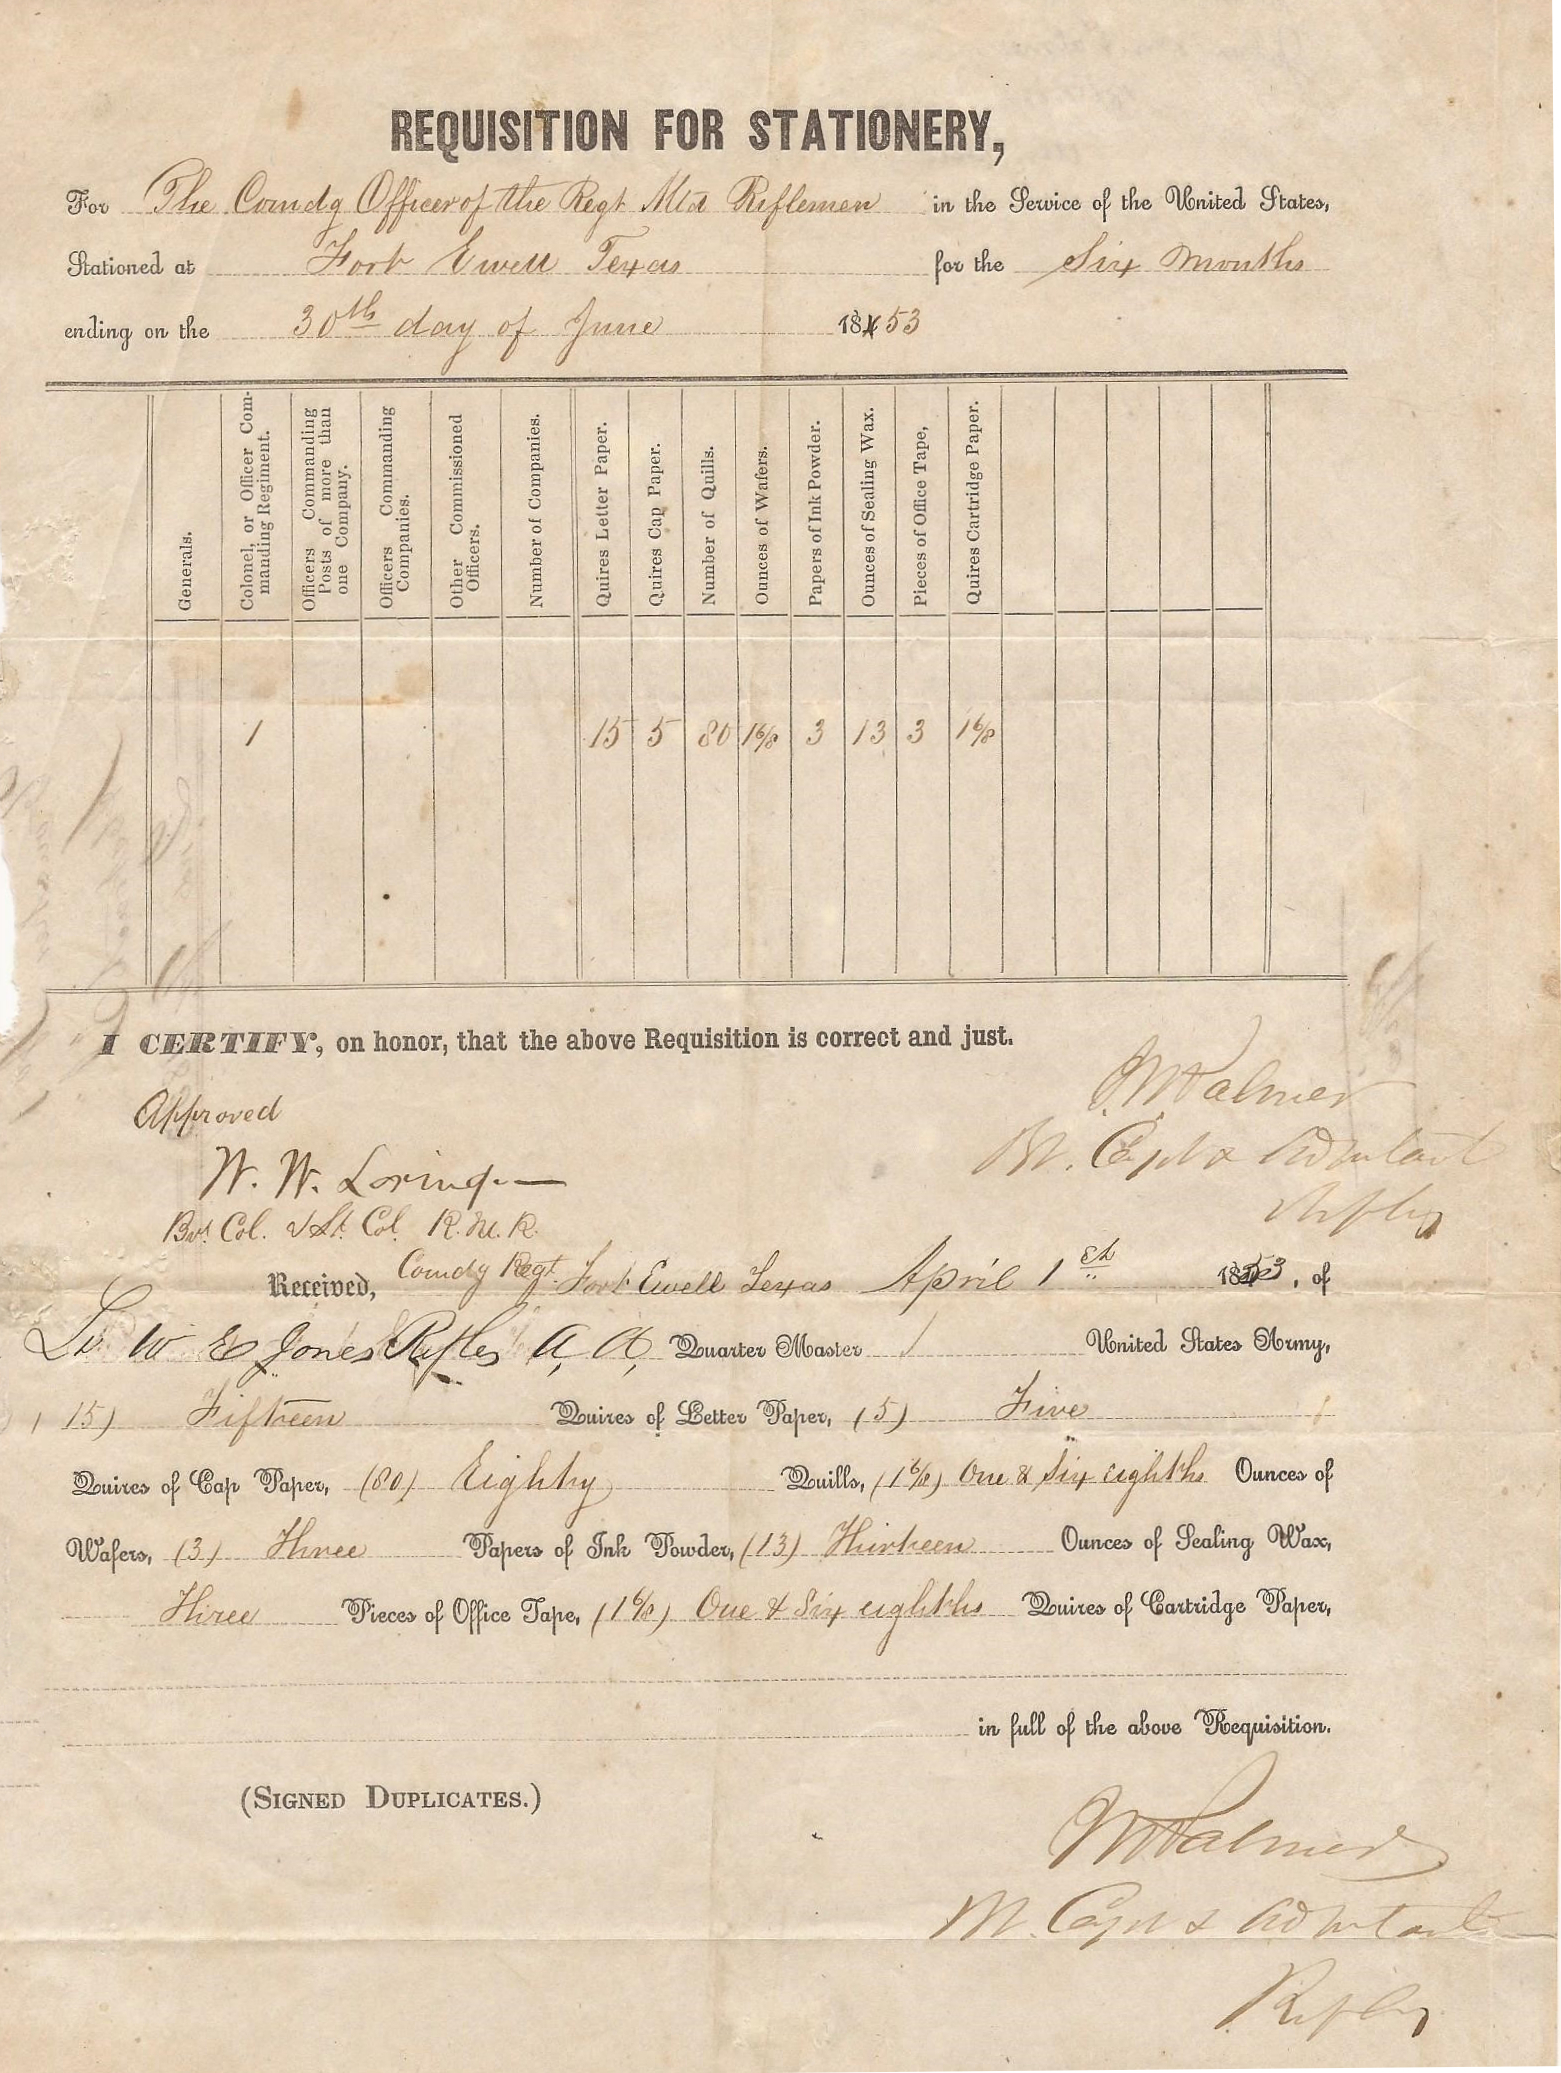 REQUISITION FOR STATIONERY,
For The Comdg Officer of the Regt Mtd Riflemen in the Service of the United States,
Stationed at Fort Ewell Texas for the Six Months
ending on the 30th day of June 184 53
Generals.
Colonel, or Officer Com-
manding Regiment.
Officers Commanding
Posts of more than
one Company.
Officers Commanding
Companies.
Other Commissioned
Officers.
Number of Companies.
Quires Letter Paper.
Quires Cap Paper.
Number of Quills.
Ounces of Wafers.
Papers of Ink Powder.
Ounces of Sealing Wax.
Pieces of Office Tape,
Quires Cartridge Paper.
1 15 5 80 1 6/8 3 13 3 1 6/8
I CERTIFY, on honor, that the above Requisition is correct and just.
Palmer
Approved
Bt. Capt & Adjutant
W. W. Loring
Rifles
Bvt Col. & Lt. Col. R. M. R.
Comdg Regt.
Received, Fort Ewell Texas April 1st 1853, of
Lt W E Jones Rifles A, A, Quarter Master United States Army,
(15) Fifteen Quires of Letter Paper, (5) Five
Quires of Cap Paper, (80) Eighty Quills, (1 6/8) One & Six eighths Ounces of
Wafers, (3) Three Papers of Ink Powder, (13) Thirteen Ounces of Sealing Wax,
Three Pieces of Office Tape, (1 6/8) One & Six eighths Quires of Cartridge Paper,
in full of the above Requisition.
(SIGNED DUPLICATES.)
Palmer
Bt. Capt & Adjutant
Rifles